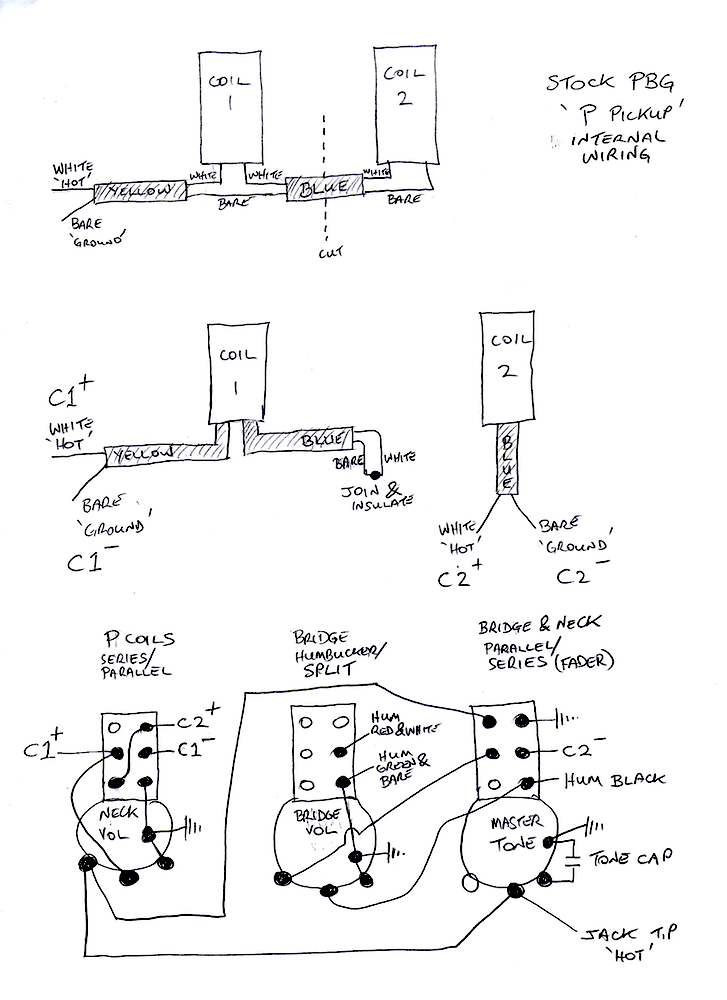 STOCK PBG
'P PICKUP'
INTERNAL
WIRING
COIL
1
COIL
2
WHITE
'HOT'
YELLOW
WHITE
WHITE
BLUE
WHITE
BARE
BARE
BARE
'GROUND'
CUT
COIL
1
COIL
2
C1+
WHITE
'HOT'
YELLOW
BLUE
BARE
WHITE
JOIN &
INSULATE
BARE
'GROUND'
C1-
BLUE
WHITE
'HOT'
C2+
BARE
'GROUND'
C2-
P COILS
SERIES/
PARALLEL
BRIDGE
HUMBUCKER/
SPLIT
BRIDGE & NECK
PARALLEL/
SERIES (FADER)
C1+
C2+
C1-
HUM
RED & WHITE
HUM
GREEN &
BARE
C2-
HUM BLACK
NECK
VOL
BRIDGE
VOL
MASTER
TONE
TONE CAP
JACK TIP
'HOT'